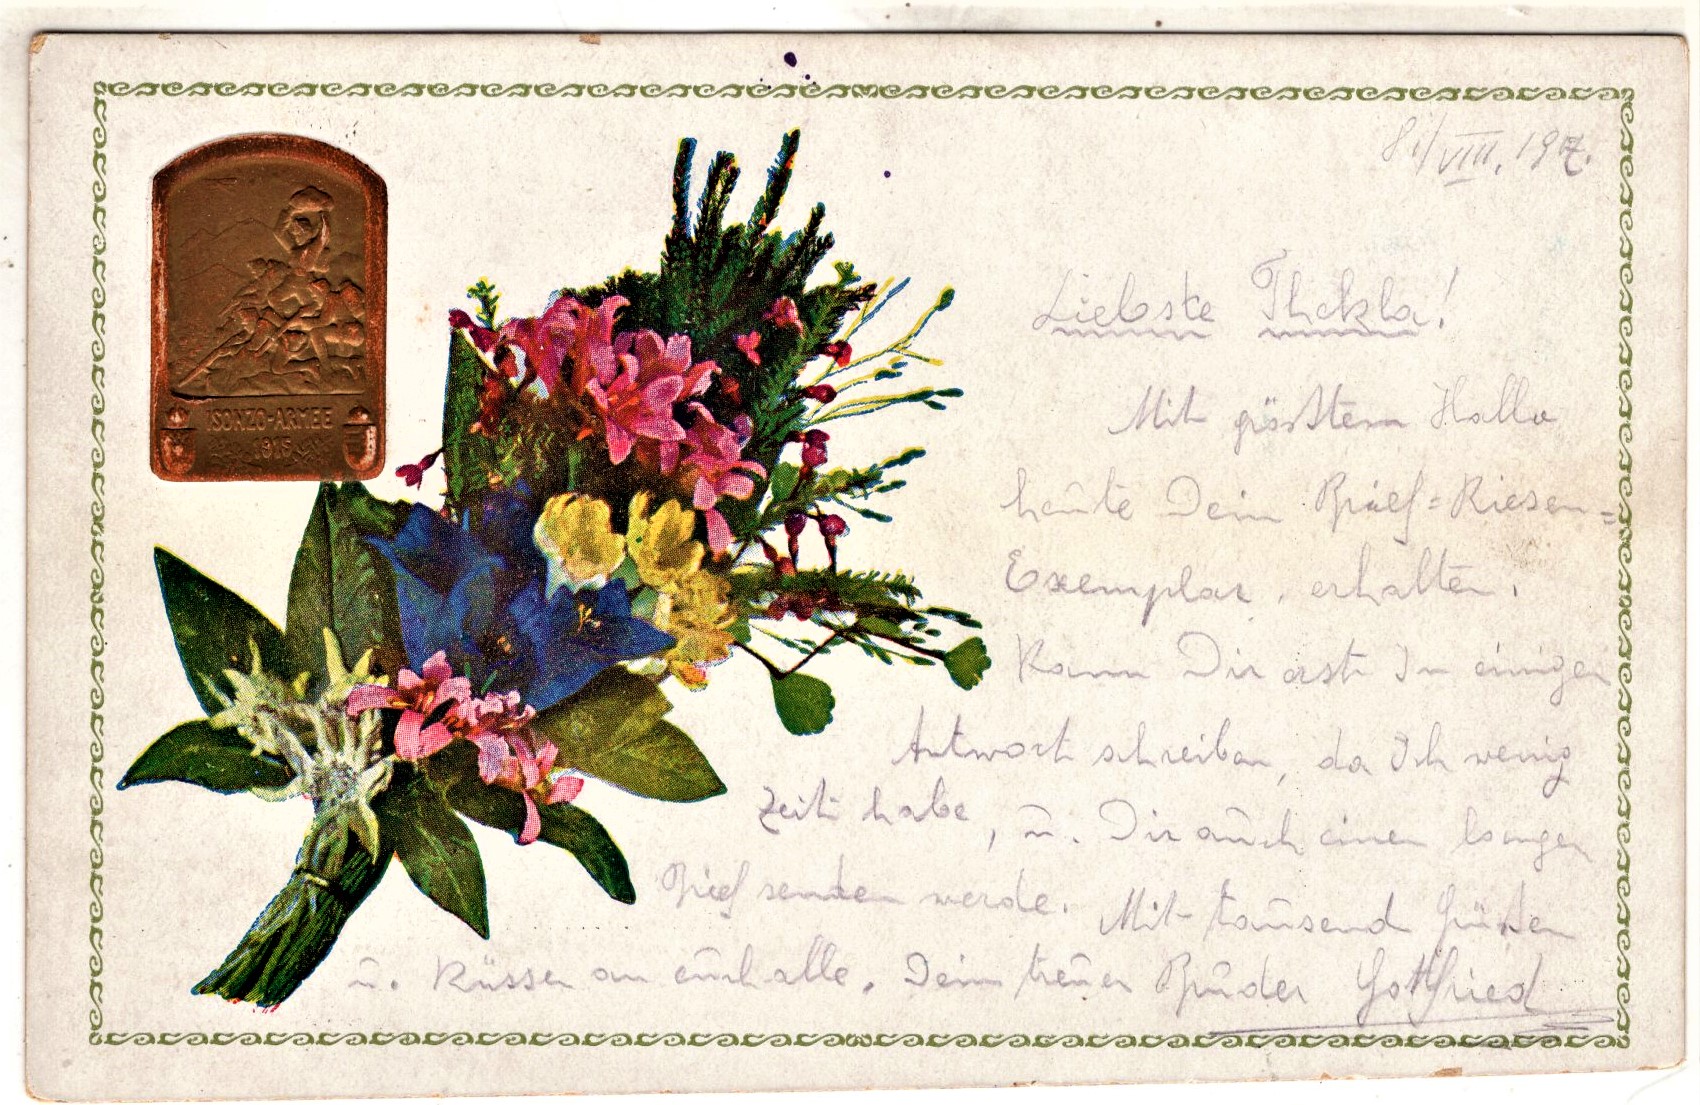 ISONZO-ARMEE
1915
8./VIII. 1917.
Liebste Thekla!
Mit größtem Hallo
heute Dein Brief=Riesen=
Exemplar, erhalten.
Kann Dir erst in einigen
Antwort schreiben, da ich wenig
Zeit habe, u. Dir auch einen langen
Brief senden werde. Mit tausend Grüßen
u. Küssen an euch alle. Dein treuer Bruder Gottfried